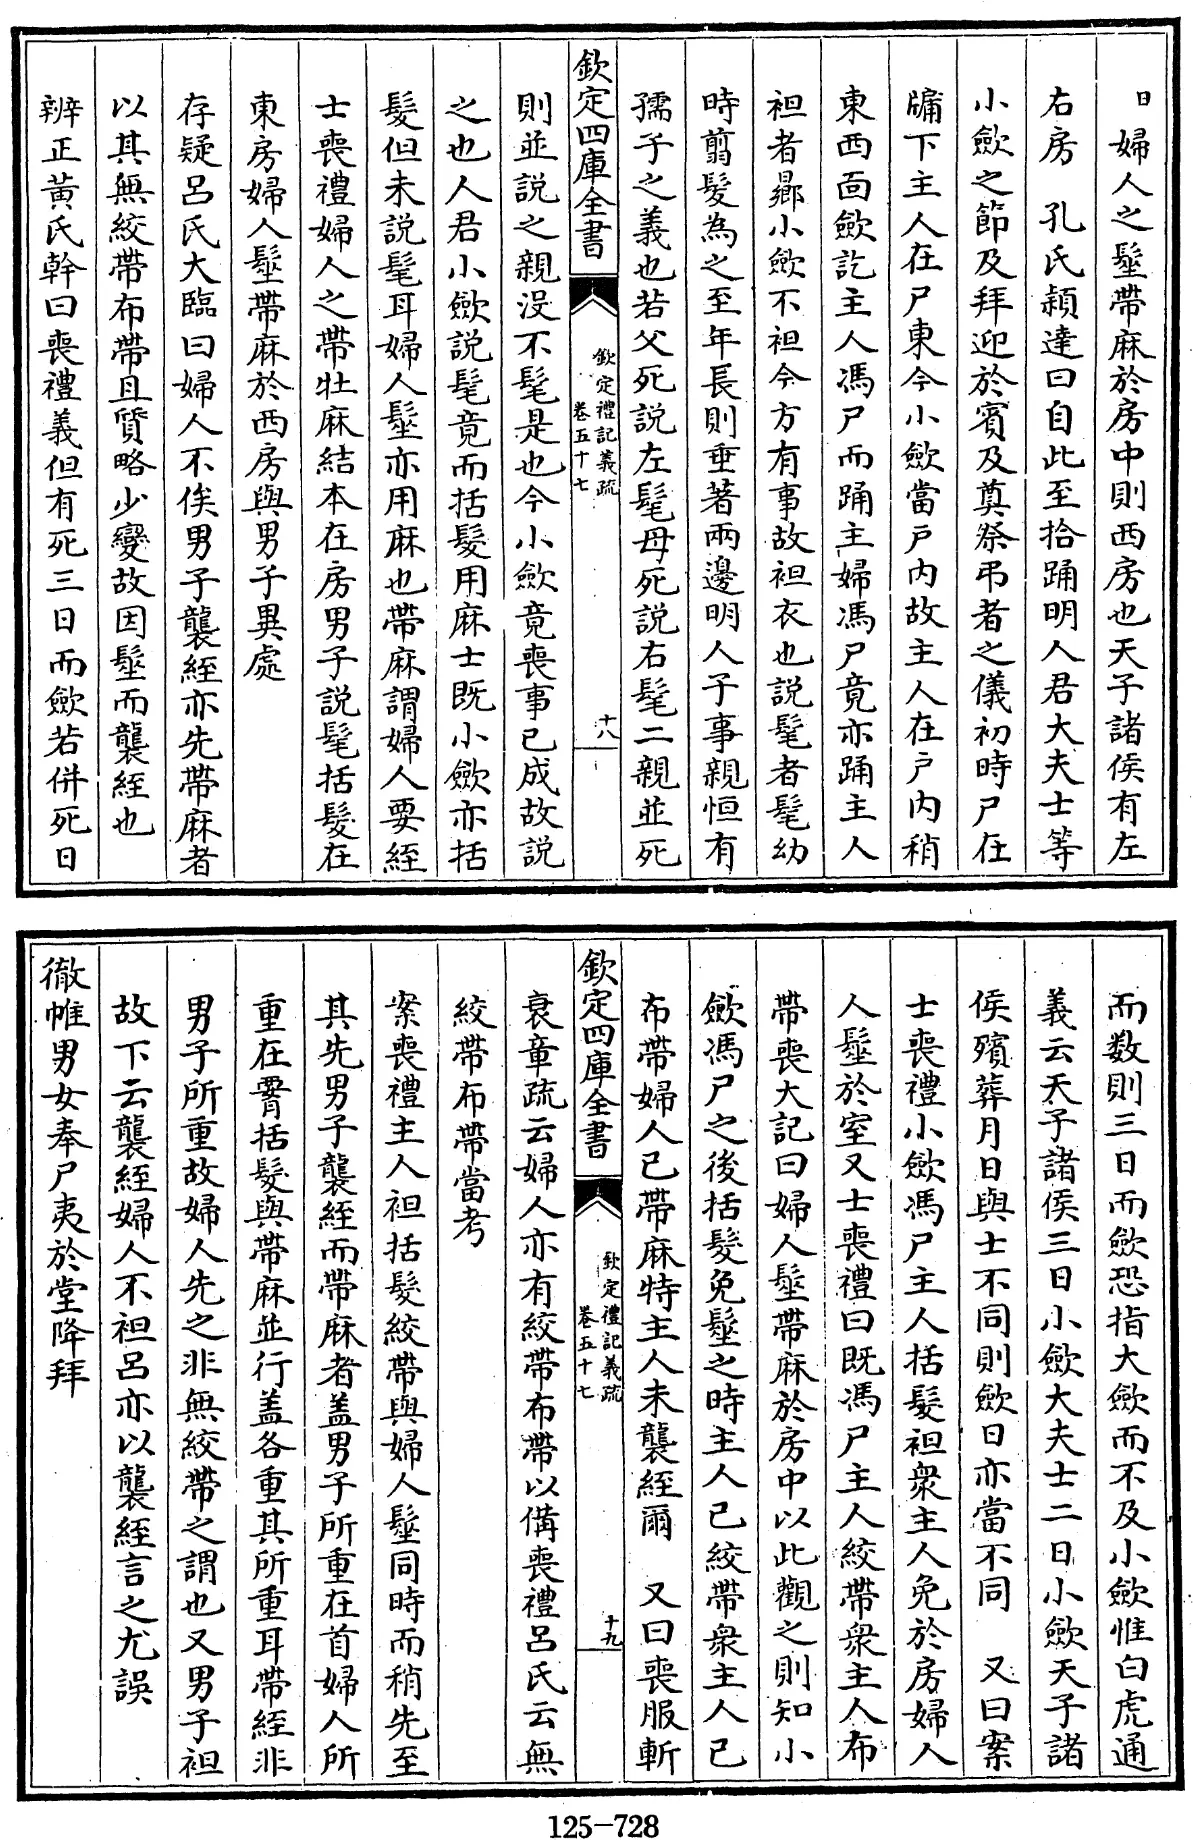 日婦人之髽帶麻於房中則西房也天子諸侯有左
右房　孔氏穎達曰自此至拾踊明人君大夫士等
小斂之節及拜迎於賓及奠祭弔者之儀初時尸在
牖下主人在尸東今小斂當戶内故主人在戶内稍
東西靣斂訖主人馮尸而踊主婦馮尸竟亦踊主人
袒者曏小斂不袒今方有事故袒衣也説髦者髦幼
時翦髮為之至年長則垂著兩邊明人子事親恒有
孺子之義也若父死説左髦母死説右髦二親並死
欽定四庫全書
欽定禮記義疏
卷五十七
十八
則並説之親沒不髦是也今小斂竟喪事已成故説
之也人君小斂説髦竟而括髮用麻士既小斂亦括
髮但未説髦耳婦人髽亦用麻也帶麻謂婦人要絰
士喪禮婦人之帶牡麻結本在房男子説髦括髮在
東房婦人髽帶麻於西房與男子異處
存疑吕氏大臨曰婦人不俟男子襲絰亦先帶麻者
以其無絞帶布帶且質略少變故因髽而襲絰也
辨正黄氏幹曰喪禮義但有死三日而斂若併死日
而数則三日而斂恐指大斂而不及小斂惟白虎通
義云天子諸侯三日小斂大夫士二日小斂天子諸
侯殯葬月日與士不同則斂日亦當不同　又曰案
士喪禮小斂馮尸主人括髮袒衆主人免於房婦人
人髽於室又士喪禮曰既馮尸主人絞帶衆主人布
帶喪大記曰婦人髽帶麻於房中以此觀之則知小
斂馮尸之後括髮免髽之時主人已絞帶衆主人已
布帶婦人已帶麻特主人未襲絰爾　又曰喪服斬
欽定四庫全書
欽定禮記義疏
卷五十七
十九
衰章疏云婦人亦有絞帶布帶以備喪禮吕氏云無
絞帶布帶當考
案喪禮主人袒括髮絞帶與婦人髽同時而稍先至
其先男子襲絰而帶麻者盖男子所重在首婦人所
重在要括髮與帶麻並行盖各重其所重耳帶絰非
男子所重故婦人先之非無絞帶之謂也又男子袒
故下云襲絰婦人不袒吕亦以襲絰言之尤誤
徹帷男女奉尸夷於堂降拜
125-728